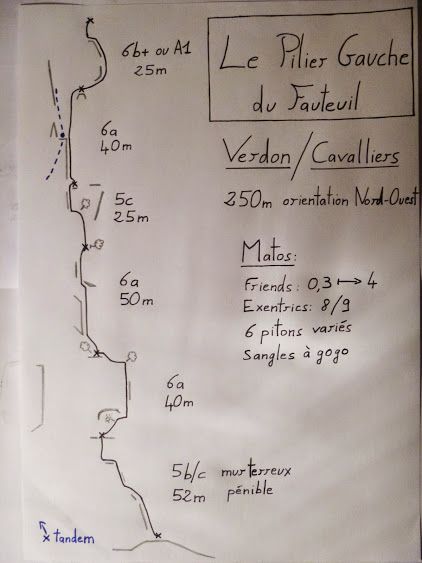 Le Pilier Gauche
du Fauteuil
Verdon/Cavalliers
250m orientation Nord-Ouest
Matos:
Friends: 0,3 ↦ 4
Exentrics: 8/9
6 pitons variés
Sangles à gogo
6b+ ou A1
25m
6a
40m
5c
25m
6a
50m
6a
40m
5b/c mur terreux
52m pénible
tandem